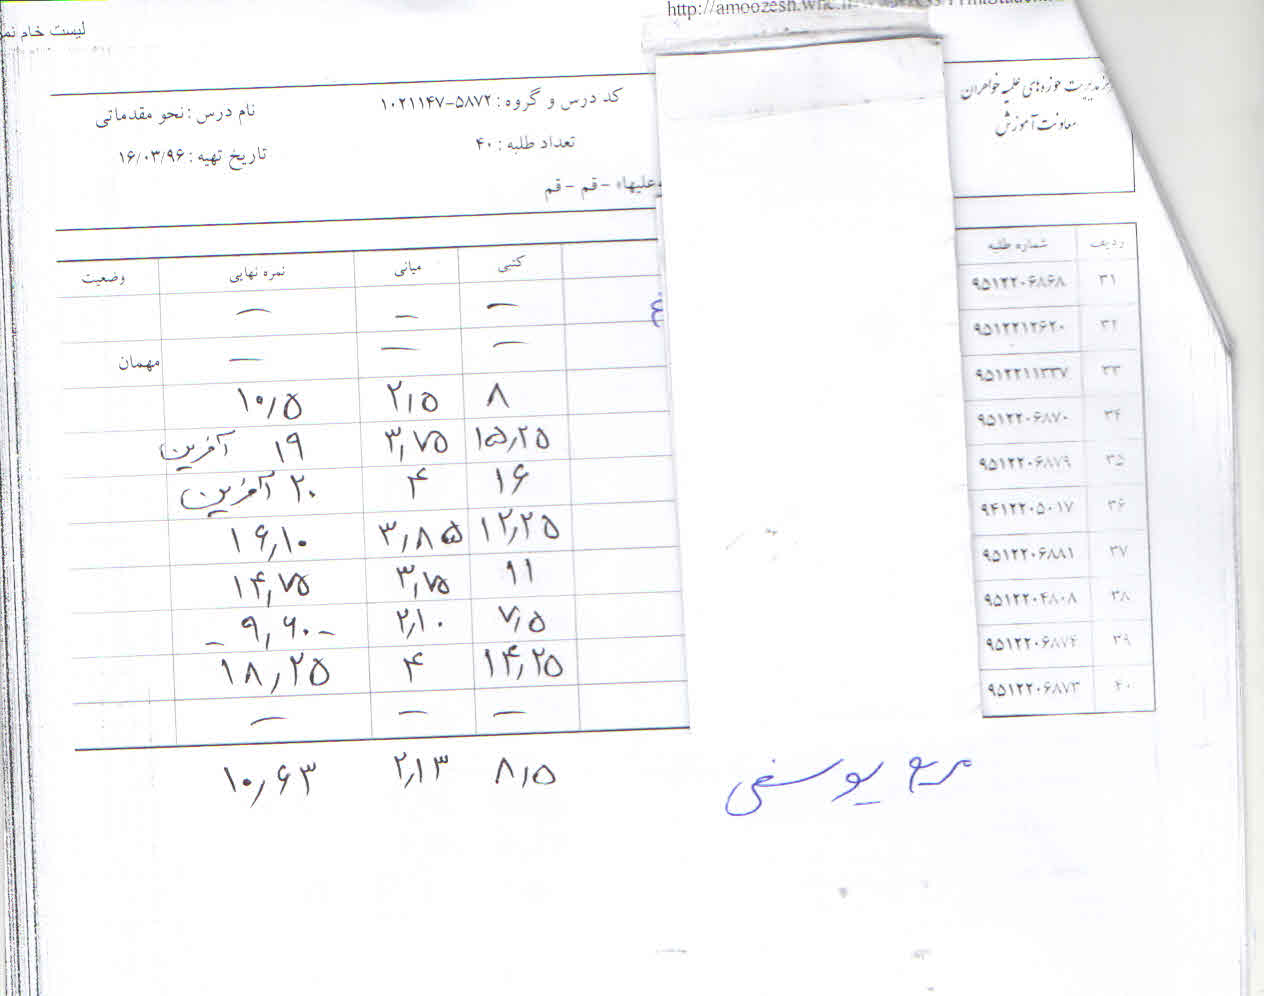 لیست خام نمر
http://amoozesh.whc.ir
مرکز مدیریت حوزه‌های علمیه خواهران
معاونت آموزش
کد درس و گروه : ۵۸۷۲-۱۰۲۱۱۴۷
نام درس : نحو مقدماتی
تعداد طلبه : ۴۰
تاریخ تهیه : ۱۶/۰۳/۹۶
علیها» - قم - قم
ردیف شماره طلبه کتبی میانی نمره نهایی وضعیت
۳۱ ۹۵۱۲۲۰۶۸۶۸ — — —
۳۲ ۹۵۱۲۲۱۲۶۲۰ — — — مهمان
۳۳ ۹۵۱۲۲۱۱۳۳۷ ۸ ۲٫۵ ۱۰٫۵
۳۴ ۹۵۱۲۲۰۶۸۷۰ ۱۵٫۲۵ ۳٫۷۵ ۱۹ آفرین
۳۵ ۹۵۱۲۲۰۶۸۷۹ ۱۶ ۴ ۲۰ آفرین
۳۶ ۹۴۱۲۲۰۵۰۱۷ ۱۲٫۲۵ ۳٫۸۵ ۱۶٫۱۰
۳۷ ۹۵۱۲۲۰۶۸۸۱ ۱۱ ۳٫۷۵ ۱۴٫۷۵
۳۸ ۹۵۱۲۲۰۴۸۰۸ ۷٫۵ ۲٫۱۰ - ۹٫۶۰ -
۳۹ ۹۵۱۲۲۰۶۸۷۴ ۱۴٫۲۵ ۴ ۱۸٫۲۵
۴۰ ۹۵۱۲۲۰۶۸۷۳ — — —
مریم یوسفی ۸٫۵ ۲٫۱۳ ۱۰٫۶۳